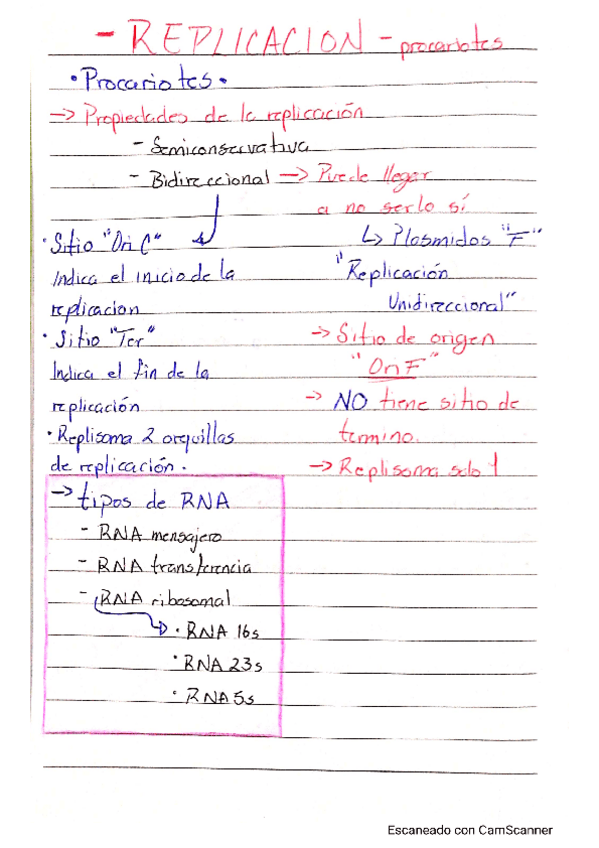 - REPLICACION - procariotes
• Procariotes •
-> Propiedades de la replicación
- Semiconservativa
- Bidireccional -> Puede llegar
a no serlo sí
↳ Plasmidos "F"
"Replicación
Unidireccional"
-> Sitio de origen
"Ori F"
-> NO tiene sitio de
termino.
-> Replisoma solo 1
• Sitio "Ori C"
Indica el inicio de la
replicacion
• Sitio "Ter"
Indica el fin de la
replicación
• Replisoma 2 orquillas
de replicación.
-> tipos de RNA
- RNA mensajero
- RNA transferencia
- RNA ribosomal
↳ • RNA 16s
• RNA 23s
• RNA 5s
Escaneado con CamScanner